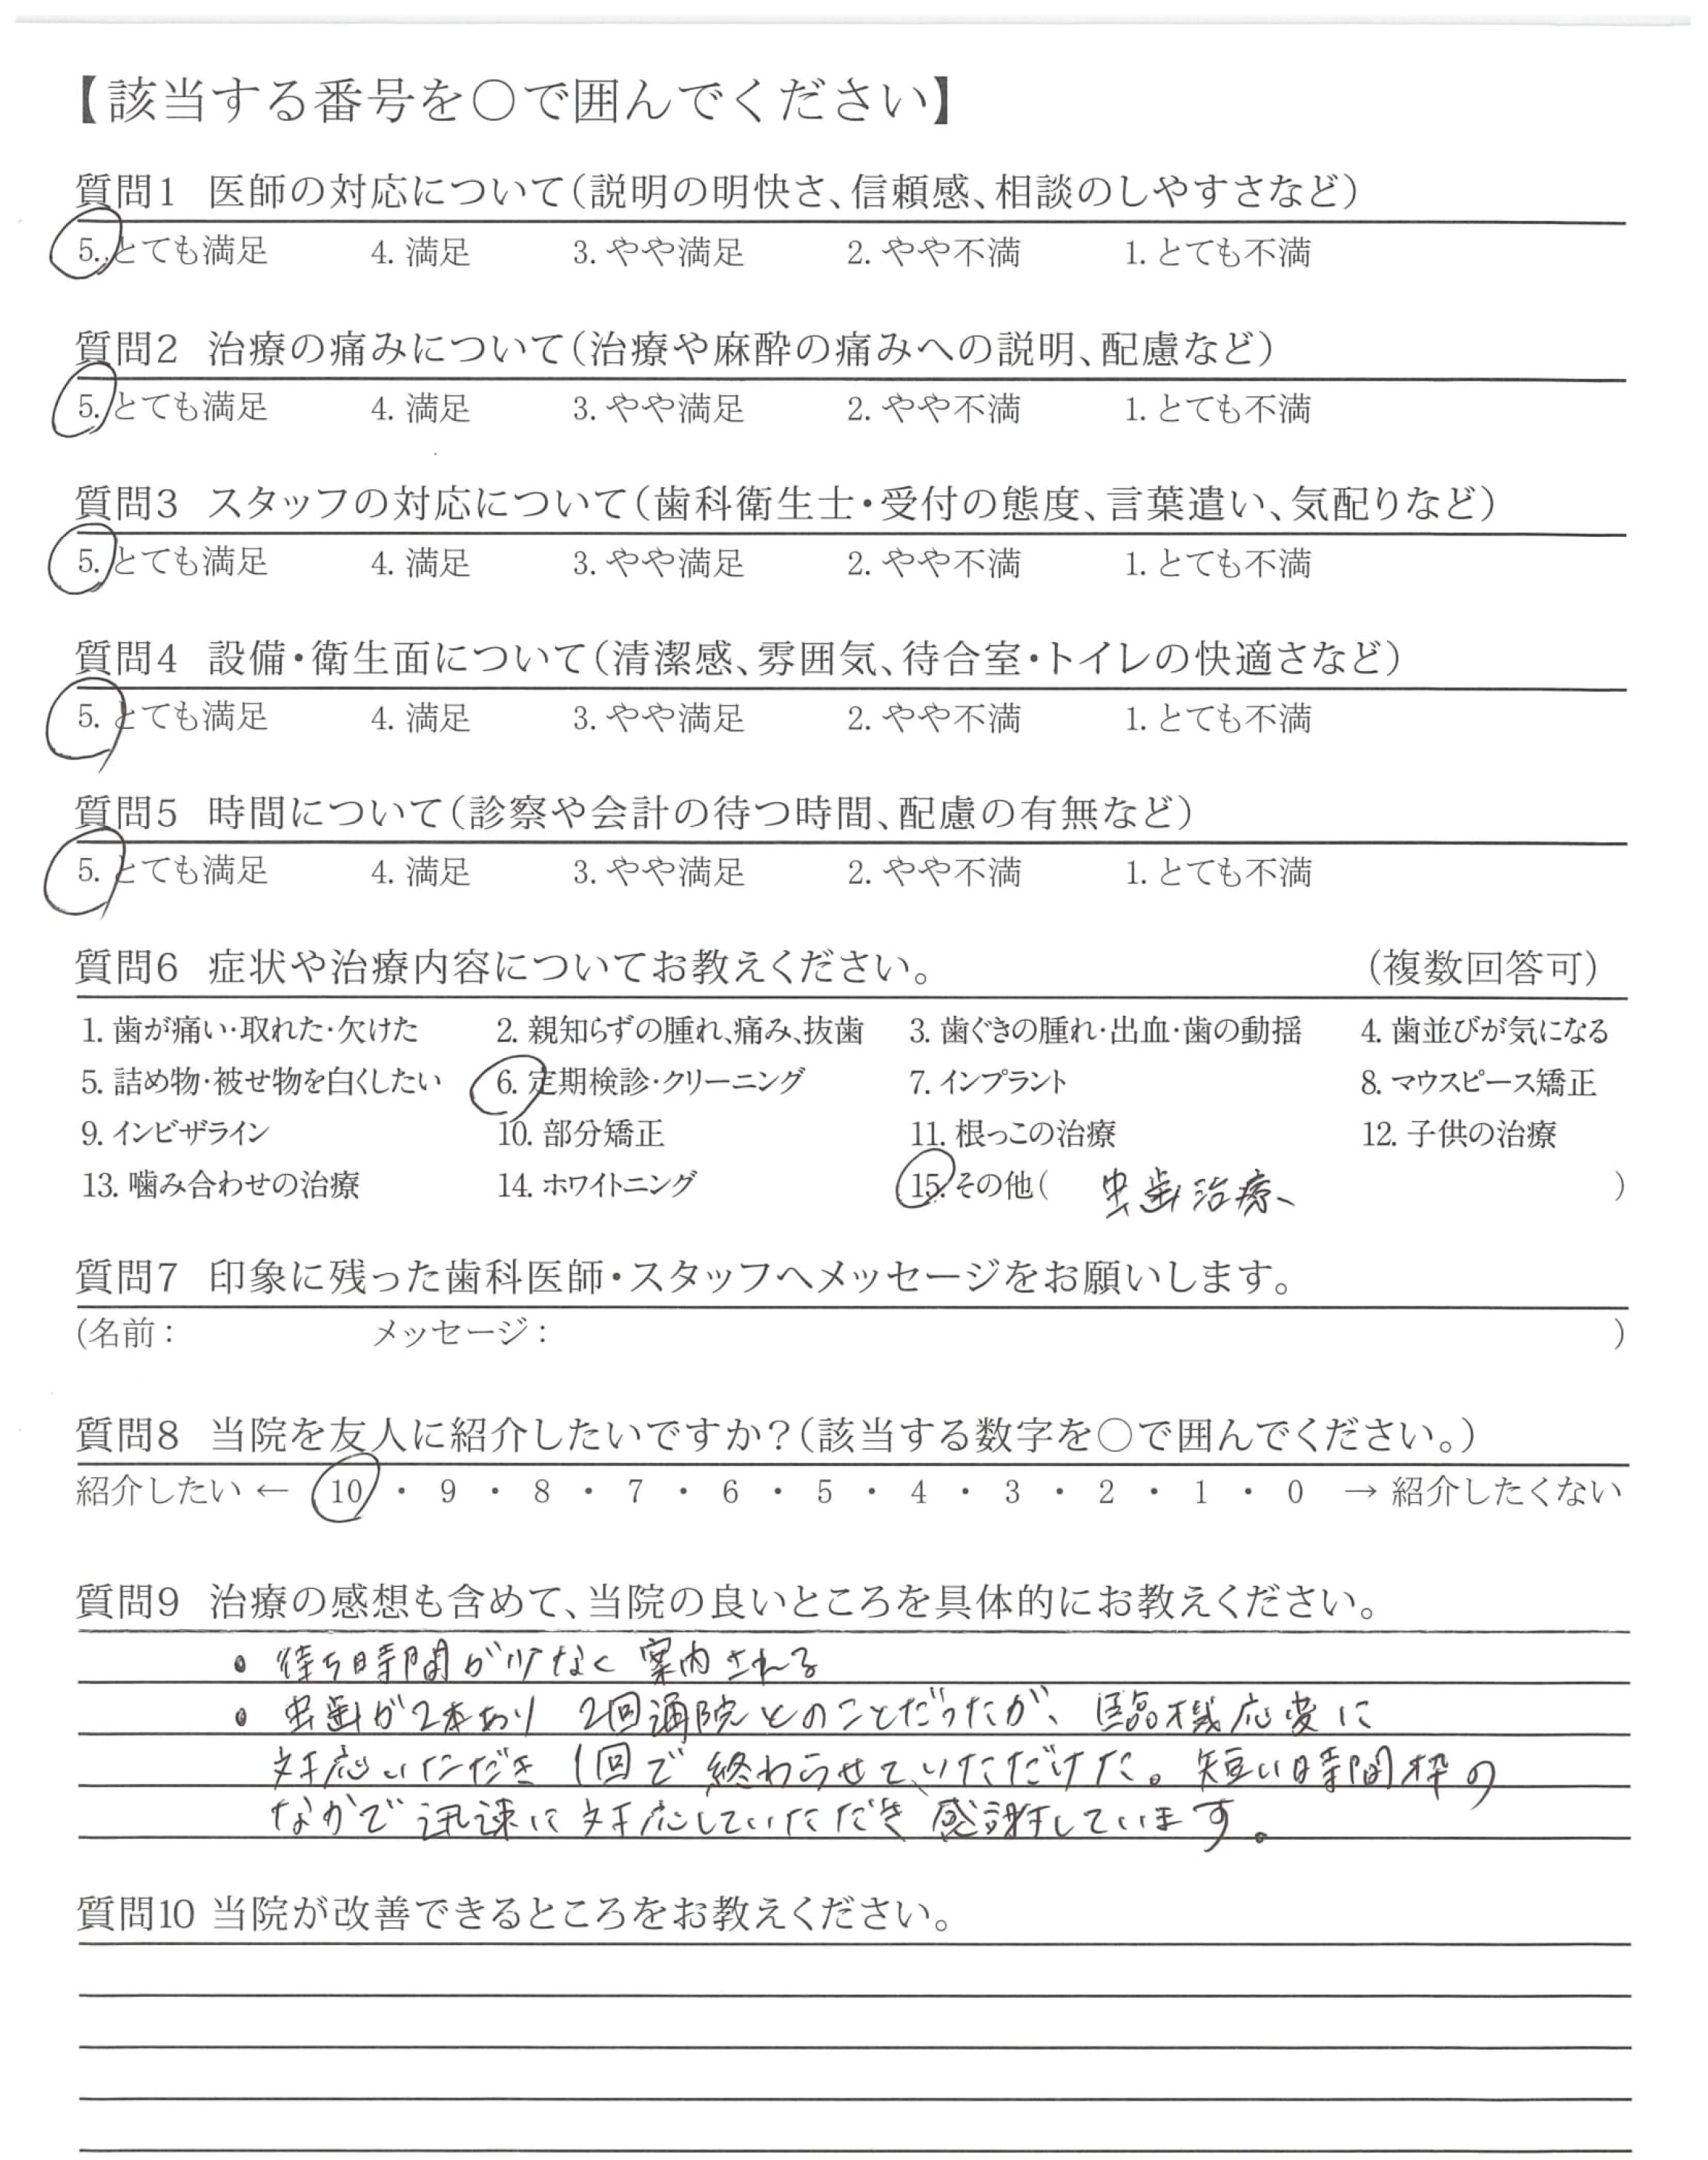 【該当する番号を○で囲んでください】
質問1 医師の対応について(説明の明快さ、信頼感、相談のしやすさなど)
5. とても満足 4. 満足 3. やや満足 2. やや不満 1. とても不満
質問2 治療の痛みについて(治療や麻酔の痛みへの説明、配慮など)
5. とても満足 4. 満足 3. やや満足 2. やや不満 1. とても不満
質問3 スタッフの対応について(歯科衛生士・受付の態度、言葉遣い、気配りなど)
5. とても満足 4. 満足 3. やや満足 2. やや不満 1. とても不満
質問4 設備・衛生面について(清潔感、雰囲気、待合室・トイレの快適さなど)
5. とても満足 4. 満足 3. やや満足 2. やや不満 1. とても不満
質問5 時間について(診察や会計の待つ時間、配慮の有無など)
5. とても満足 4. 満足 3. やや満足 2. やや不満 1. とても不満
質問6 症状や治療内容についてお教えください。 (複数回答可)
1. 歯が痛い・取れた・欠けた 2. 親知らずの腫れ、痛み、抜歯 3. 歯ぐきの腫れ・出血・歯の動揺 4. 歯並びが気になる
5. 詰め物・被せ物を白くしたい 6. 定期検診・クリーニング 7. インプラント 8. マウスピース矯正
9. インビザライン 10. 部分矯正 11. 根っこの治療 12. 子供の治療
13. 噛み合わせの治療 14. ホワイトニング 15. その他( 虫歯治療 )
質問7 印象に残った歯科医師・スタッフへメッセージをお願いします。
(名前: メッセージ: )
質問8 当院を友人に紹介したいですか?(該当する数字を○で囲んでください。)
紹介したい ← 10 ・ 9 ・ 8 ・ 7 ・ 6 ・ 5 ・ 4 ・ 3 ・ 2 ・ 1 ・ 0 → 紹介したくない
質問9 治療の感想も含めて、当院の良いところを具体的にお教えください。
• 待ち時間が少なく案内される
• 虫歯が2本あり 2回通院とのことだったが、臨機応変に
対応いただき 1回で終わらせていただけた。短い時間枠の
なかで迅速に対応していただき感謝しています。
質問10 当院が改善できるところをお教えください。